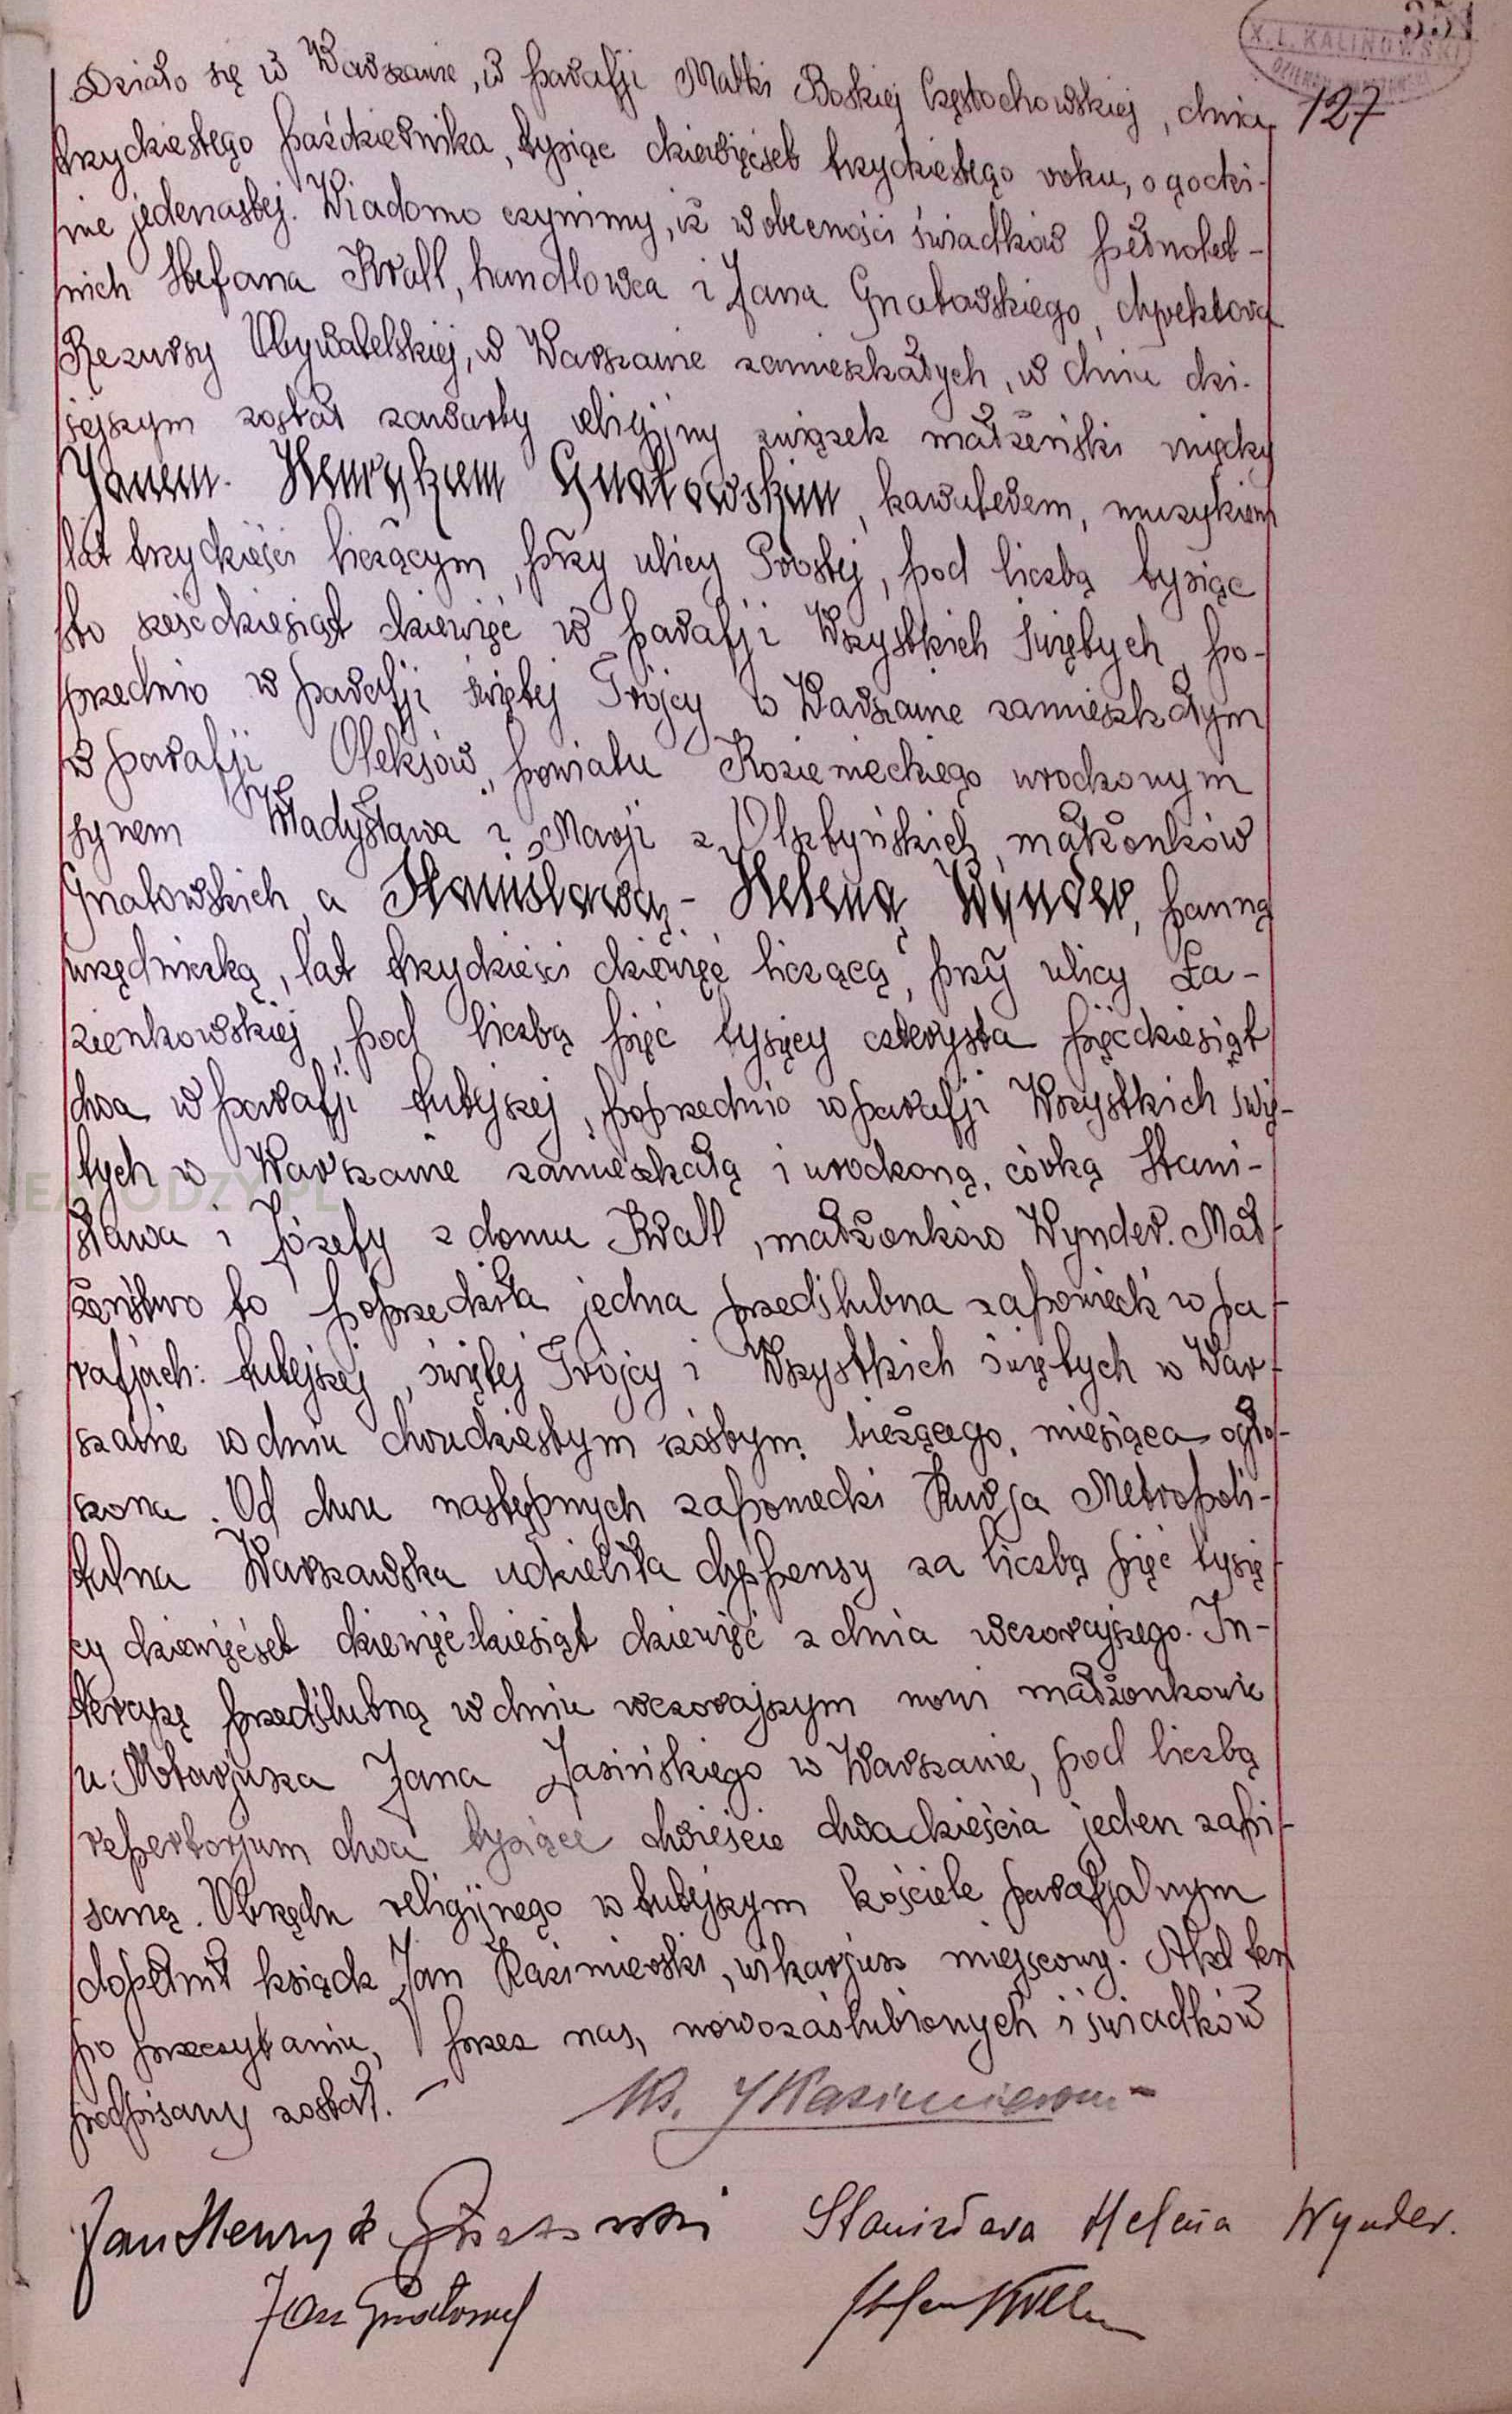 351
X. L. KALINOWSKI
127
Działo się w Warszawie, w parafji Matki Boskiej Częstochowskiej, dnia
trzydziestego października, tysiąc dziewięćset trzydziestego roku, o godzi-
nie jedenastej. Wiadomo czynimy, iż w obecności świadków pełnolet-
nich Stefana Krall, handlowca i Jana Gnatowskiego, dyrektora
Rezursy Obywatelskiej, w Warszawie zamieszkałych, w dniu dzi-
siejszym został zawarty religijny związek małżeński między
Janem-Henrykiem Gnatowskim, kawalerem, muzykiem
lat trzydzieści liczącym, przy ulicy Prostej, pod liczbą tysiąc
sto sześćdziesiąt dziewięć w parafji Wszystkich Świętych, po-
przednio w parafji świętej Trójcy w Warszawie zamieszkałym
w parafji Oleksów, powiatu Kozienieckiego urodzonym
synem Władysława i Marji z Olsztyńskich, małżonków
Gnatowskich, a Stanisławą-Heleną Wynder, panną
urzędniczką, lat trzydzieści dziewięć liczącą, przy ulicy Ła-
zienkowskiej, pod liczbą pięć tysięcy czterysta pięćdziesiąt
dwa w parafji tutejszej, poprzednio w parafji Wszystkich Świę-
tych w Warszawie zamieszkałą i urodzoną, córką Stani-
sława i Józefy z domu Krall, małżonków Wynder. Mał-
żeństwo to poprzedziła jedna przedślubna zapowiedź w pa-
rafjach: tutejszej, świętej Trójcy i Wszystkich świętych w War-
szawie w dniu dwudziestym szóstym bieżącego miesiąca ogło-
szona. Od dwu następnych zapowiedzi Kurja Metropoli-
talna Warszawska udzieliła dyspensy za liczbą pięć tysię-
cy dziewięćset dziewięćdziesiąt dziewięć z dnia wczorajszego. In-
tercyzę przedślubną w dniu wczorajszym nowi małżonkowie
u Notarjusza Jana Jasińskiego w Warszawie, pod liczbą
repertorjum dwa tysiące dwieście dwadzieścia jeden zapi-
saną. Obrzędu religijnego w tutejszym kościele parafjalnym
dopełnił ksiądz Jan Kazimierski, wikarjusz miejscowy. Akt ten
po przeczytaniu, przez nas, nowozaślubionych i świadków
podpisany został. –
Ks. J Kazimierski
Jan Henryk Gnatowski Stanisława Helena Wynder.
Jan Gnatowski Stefan Krall